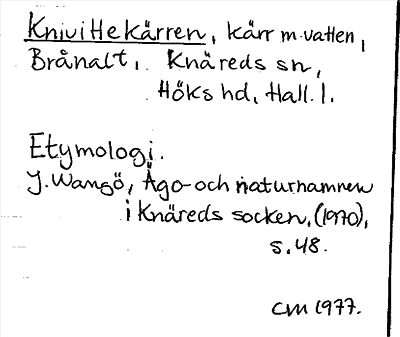 Knivittekärren, kärr m. vatten,
Brånalt, Knäreds sn,
Höks hd, Hall. l.
Etymologi.
J. Wangö, Ägo- och naturnamnen
i Knäreds socken, (1970),
s. 48.
CM 1977.